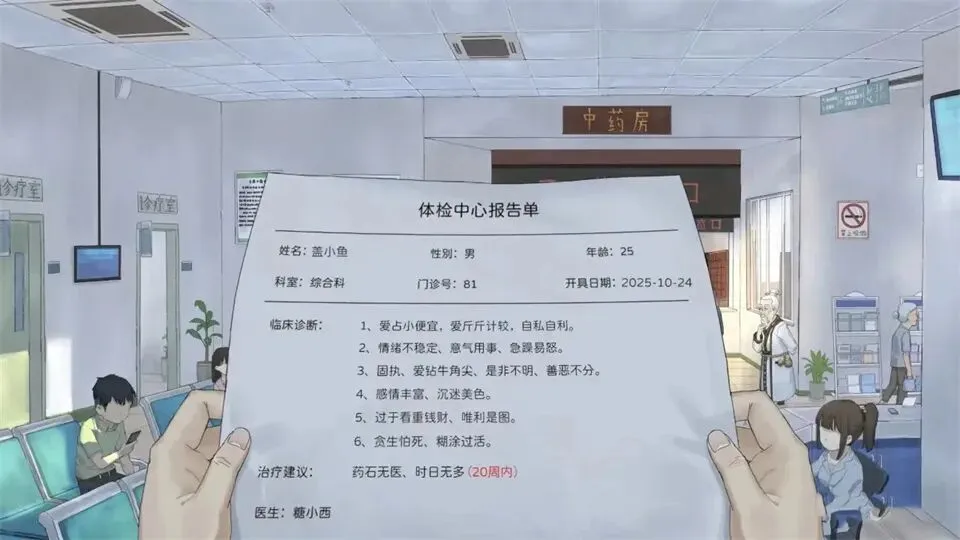 中药房
诊疗室
诊疗室
体检中心报告单
姓名：盖小鱼 性别：男 年龄：25
科室：综合科 门诊号：81 开具日期：2025-10-24
临床诊断： 1、爱占小便宜，爱斤斤计较，自私自利。
2、情绪不稳定、意气用事、急躁易怒。
3、固执、爱钻牛角尖、是非不明、善恶不分。
4、感情丰富、沉迷美色。
5、过于看重钱财、唯利是图。
6、贪生怕死、糊涂过活。
治疗建议： 药石无医、时日无多(20周内)
医生：糖小西